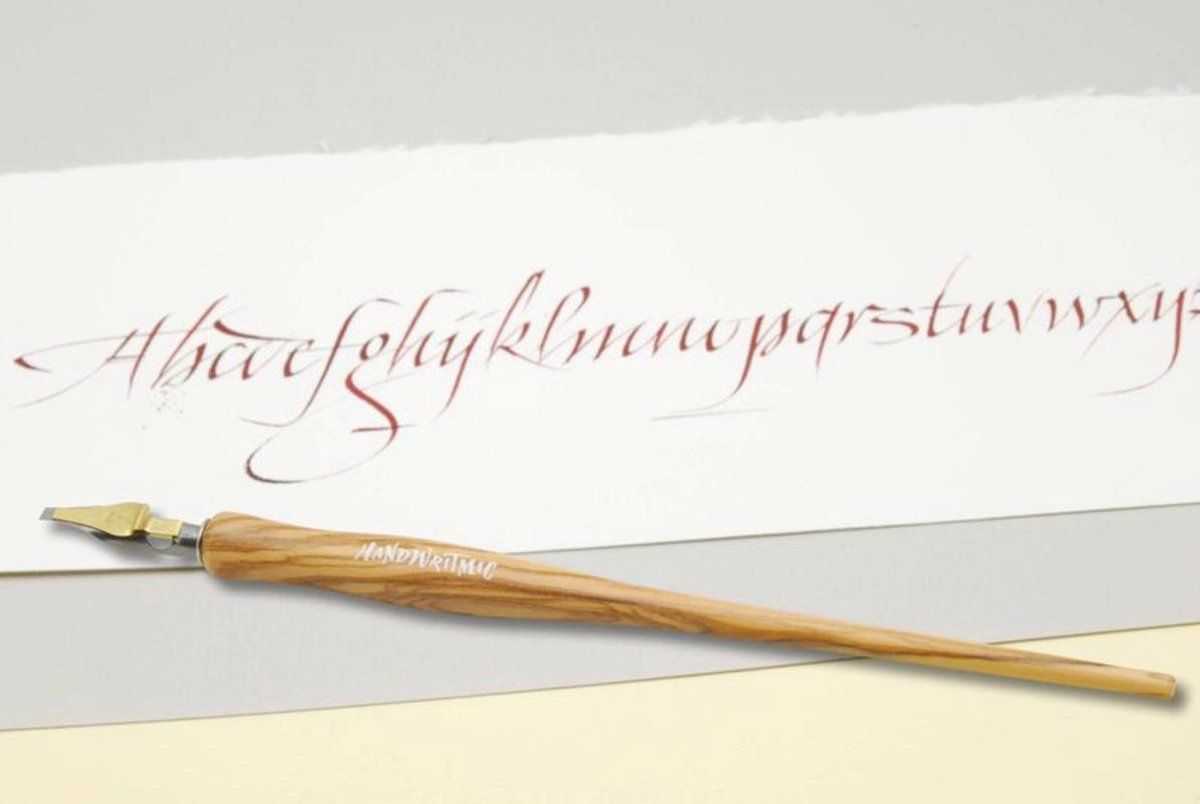 Abcdefghijklmnopqrstuvwxyz
HANDWRITMIC